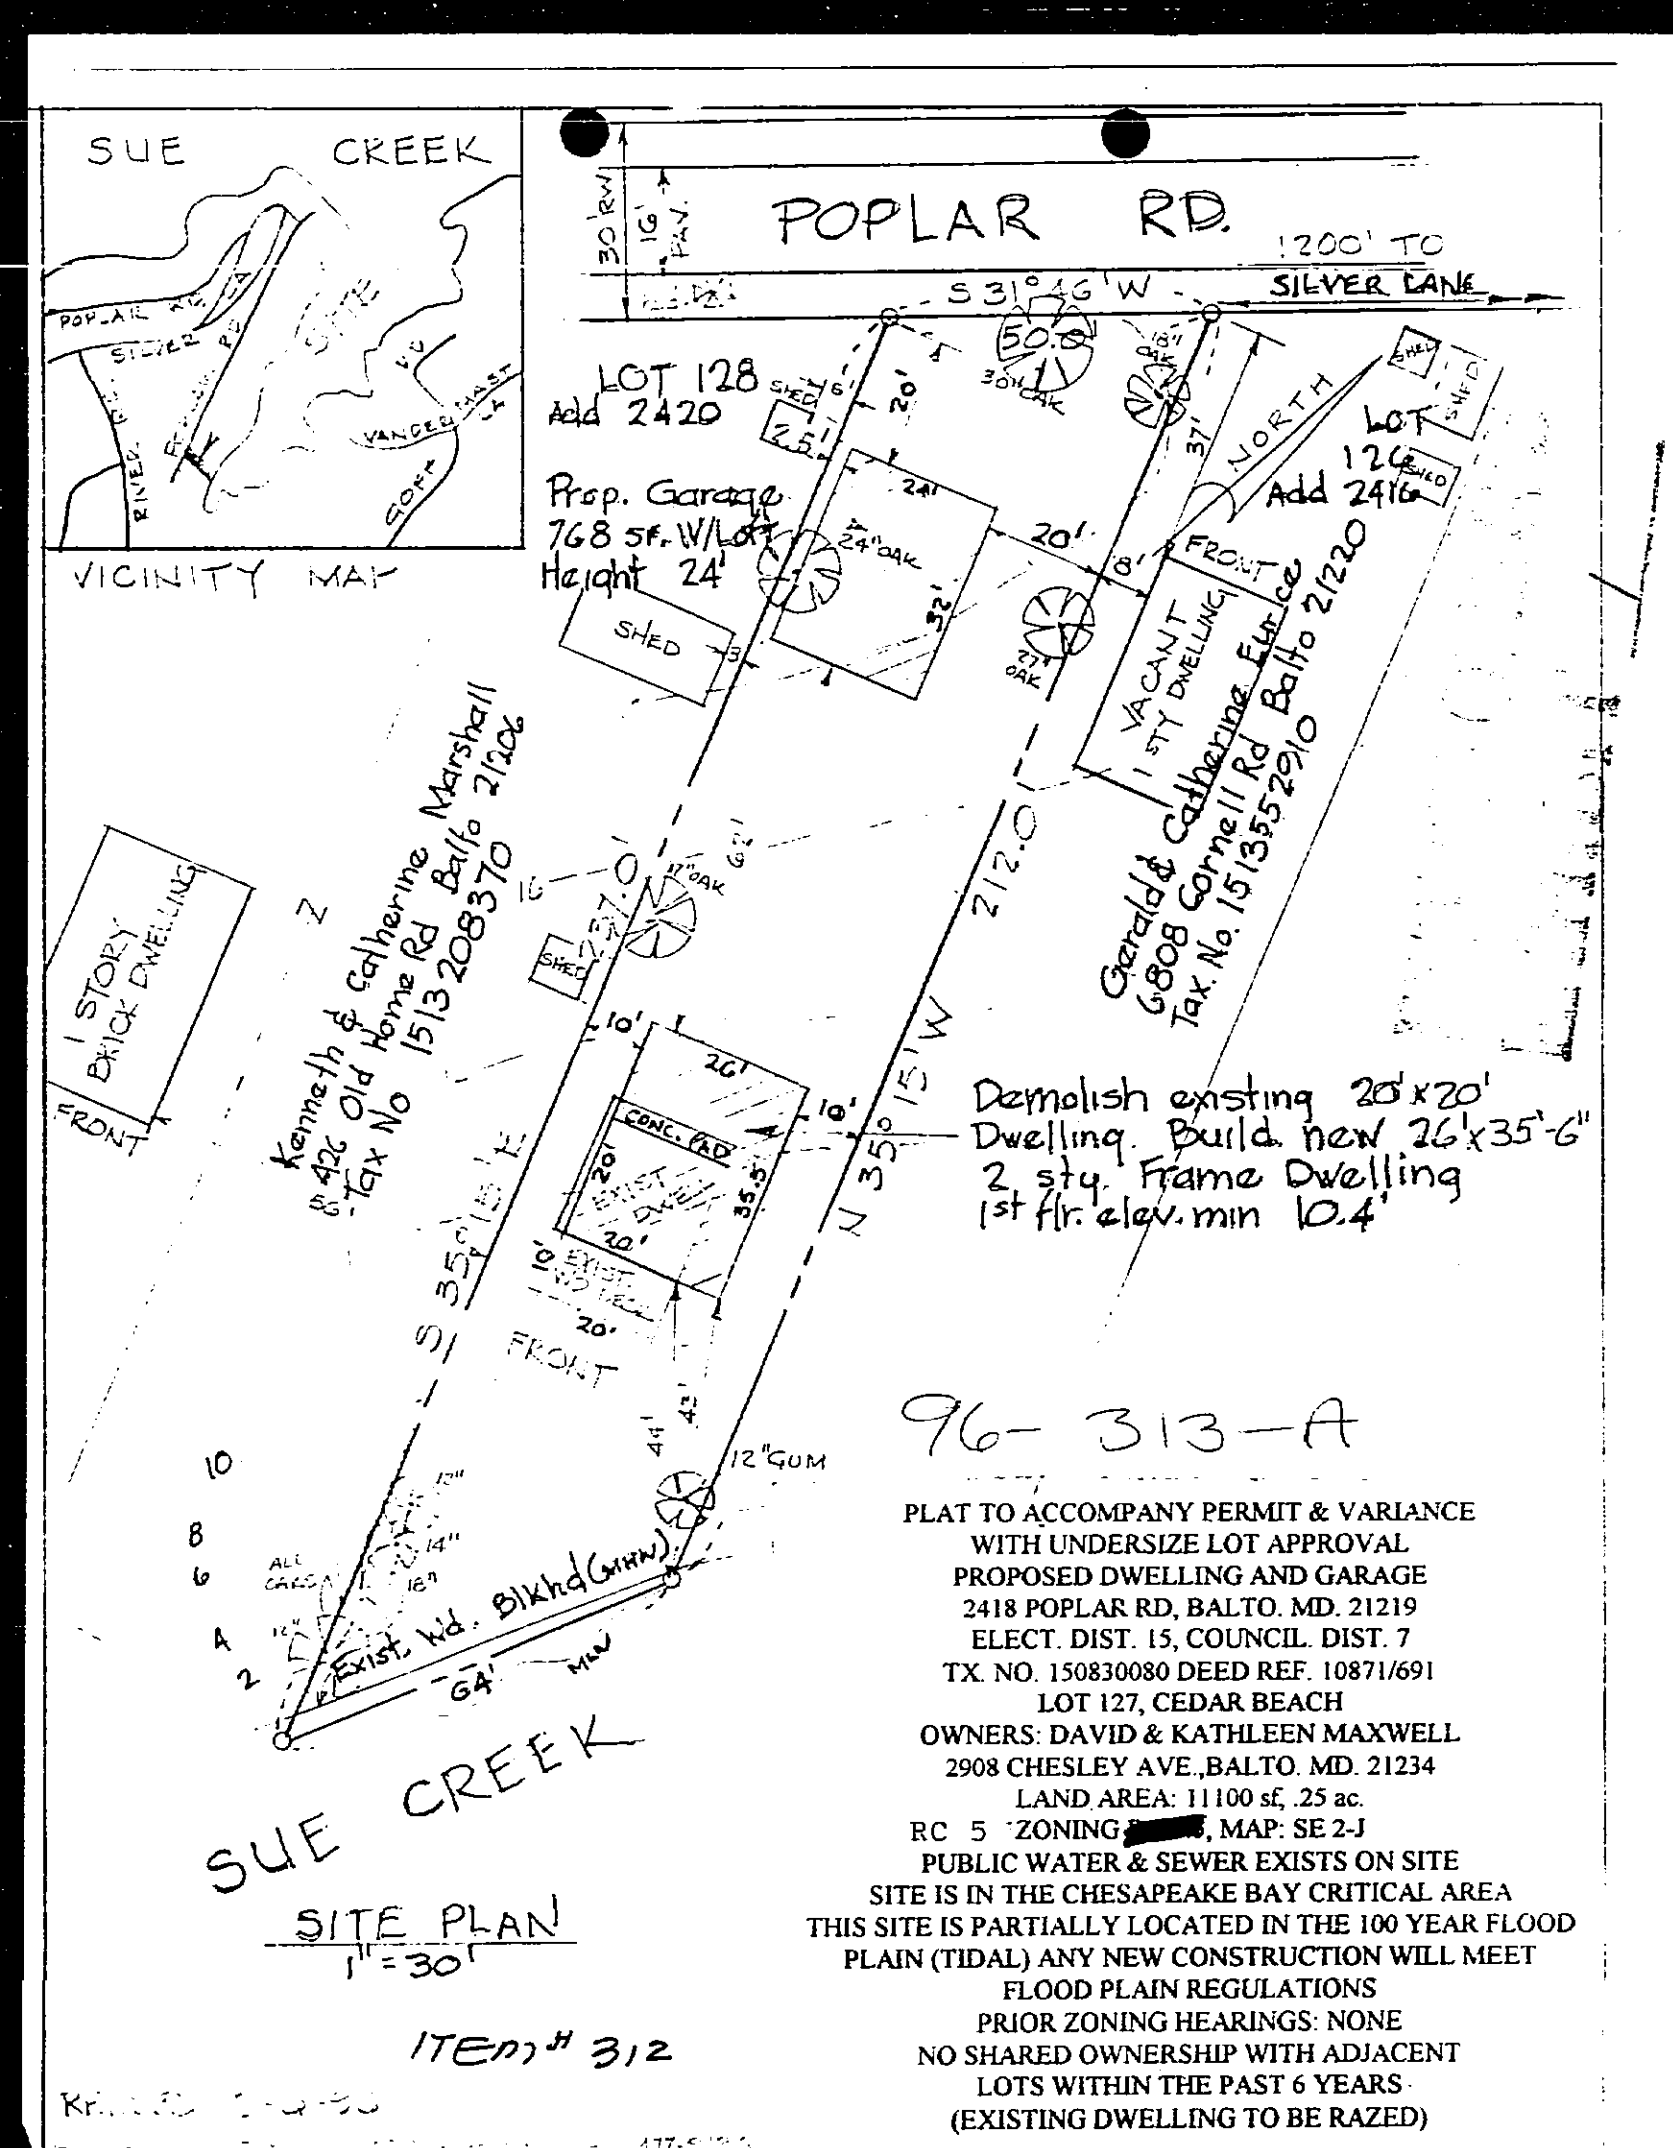 SUE CREEK
POPLAR RD
SILVER
RIVER
POPLAR RD
SITE
VANDERMAST
LA
GOFF
VICINITY MAP
30' RW
16'
PAV.
POPLAR RD.
1200' TO
SILVER LANE
S 31° 46' W
50.0'
30" OAK
18"
OAK
LOT 128
Add 2420
SHED
6'
2.5'
20'
37'
NORTH
SHED
SHED
SHED
LOT
126
Add 2416
Prop. Garage
768 SF. W/Loft
Height 24'
24'
24" OAK
32'
20'
8'
FRONT
SHED
3'
27"
OAK
VACANT
1 STY DWELLING
Gerald & Catherine Eurice
6808 Cornell Rd Balto 21220
Tax. No. 1513552910
Kenneth & Catherine Marshall
5426 Old Home Rd Balto 21206
Tax No 1513208370
1 STORY
BRICK DWELLING
FRONT
16
237.0'
17" OAK
62'
212.0'
SHED
10'
26'
CONC. PAD
20'
EXIST
DWEL
20'
35.5'
10'
N 35° 15' W
S 35° 15' E
Demolish existing 20'x20'
Dwelling. Build new 26'x35'-6"
2 sty. Frame Dwelling
1st flr. elev. min 10.4'
10'
EXIST.
WD DECK
20'
FRONT
44'
43'
12" GUM
10
8
6
4
2
12"
14"
18"
12"
ALL
Exist. Wd. Blkhd (MHW)
64'
MLW
SUE CREEK
SITE PLAN
1" = 30'
ITEM # 312
96-313-A
PLAT TO ACCOMPANY PERMIT & VARIANCE
WITH UNDERSIZE LOT APPROVAL
PROPOSED DWELLING AND GARAGE
2418 POPLAR RD, BALTO. MD. 21219
ELECT. DIST. 15, COUNCIL. DIST. 7
TX. NO. 150830080 DEED REF. 10871/691
LOT 127, CEDAR BEACH
OWNERS: DAVID & KATHLEEN MAXWELL
2908 CHESLEY AVE.,BALTO. MD. 21234
LAND AREA: 11100 sf, .25 ac.
RC 5 ZONING , MAP: SE 2-J
PUBLIC WATER & SEWER EXISTS ON SITE
SITE IS IN THE CHESAPEAKE BAY CRITICAL AREA
THIS SITE IS PARTIALLY LOCATED IN THE 100 YEAR FLOOD
PLAIN (TIDAL) ANY NEW CONSTRUCTION WILL MEET
FLOOD PLAIN REGULATIONS
PRIOR ZONING HEARINGS: NONE
NO SHARED OWNERSHIP WITH ADJACENT
LOTS WITHIN THE PAST 6 YEARS
(EXISTING DWELLING TO BE RAZED)